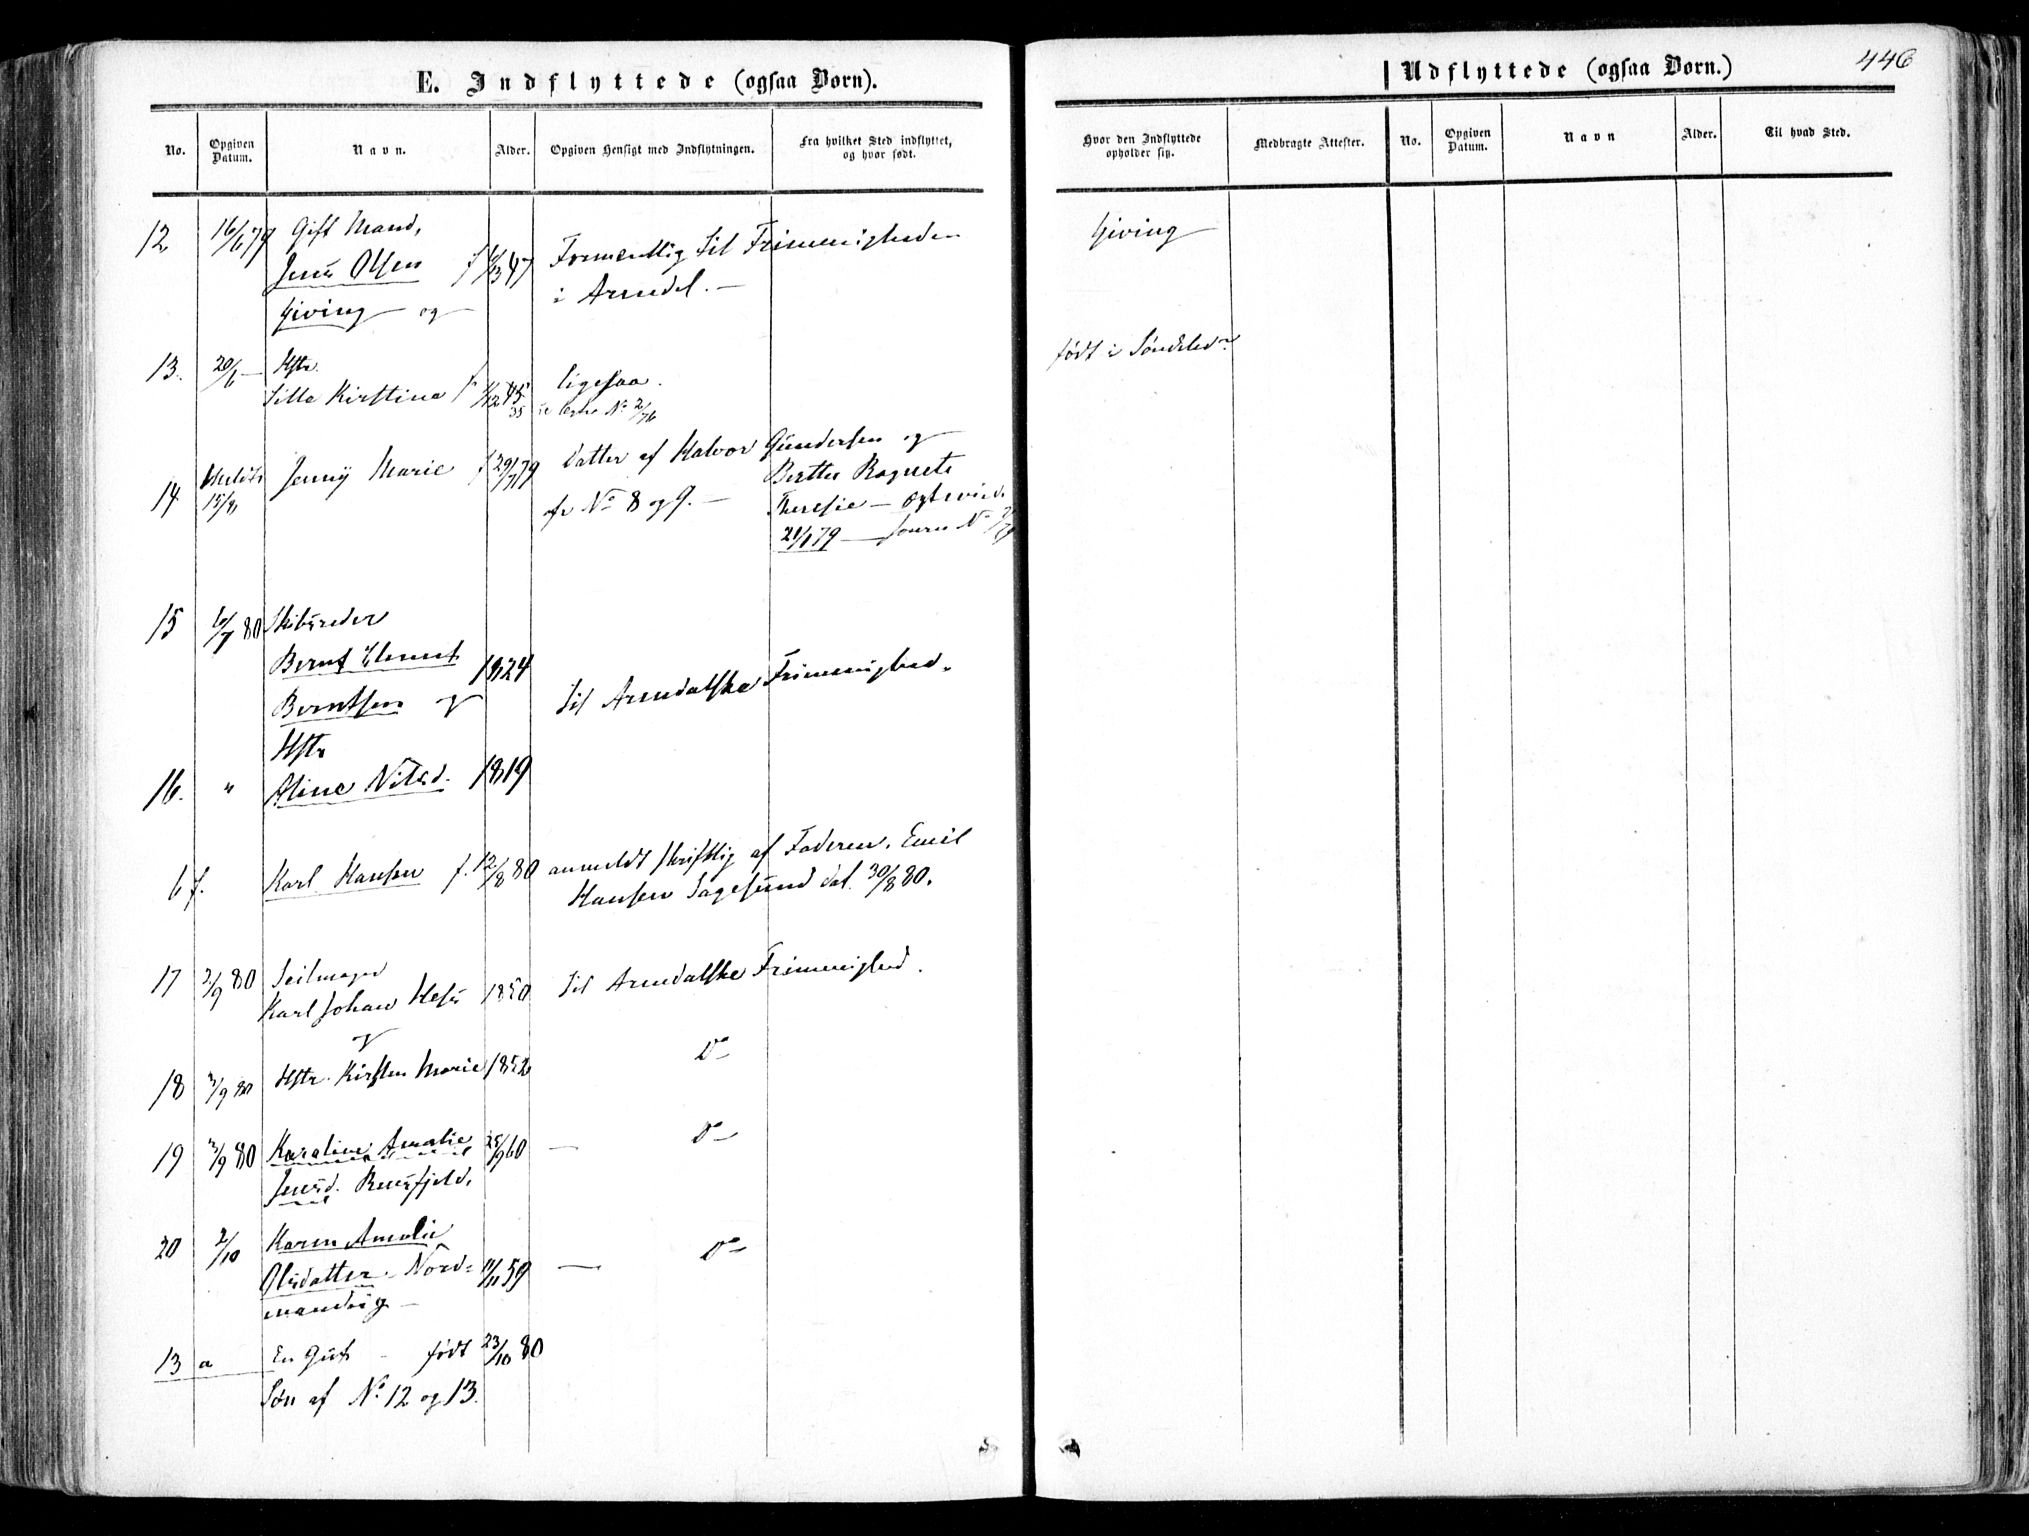 E. Indflyttede (ogsaa Børn).
Udflyttede (ogsaa Børn.)
446
No.
Opgiven Datum.
Navn.
Alder.
Opgiven Hensigt med Indflytningen.
Fra hvilket Sted indflyttet, og hvor født.
Hvor den Indflyttede opholder sig.
Medbragte Attester.
No.
Opgiven Datum.
Navn
Alder.
Til hvad Sted.
12 16/6 79 Gift Mand,
Jens Olsen f 47
Giving og
Formentlig til Frimenigheden
i Arendal. —
Giving
13. 20/6 — Hstr.
Kirstine f 45
ligesaa.
No 2/76
født i Søndeled
14 15/8 Jenny Marie f 29/7 79
Datter af Halvor Gundersen og
Berthe Ragnete
fr No 8 og 9. — Theresie —
21/1 79 — Journ No
15 6/7 80 Skibsreder
Bernt Clemet 1824
Berntsen og
Til Arendalske Frimenighed.
Hstr
16. " Aline Nilsd. 1819
6 f. Karl Hansen f. 12/8 80 anmeldt skriftlig af Faderen, Emil
Hansen Sagesund dat. 30/8 80.
17 2/9 80 Seilmager
Karl Johan 1850
Til Arendalske Frimenighed.
og
18 3/9 80 Hstr. Kirsten Marie 1852 Do
19 3/9 80 Karoline Amalie 25/9 60 — Do
Jensd. Rensfjeld.
20 2/10 Karen Amalie
Olsdatter. Nord= 11/11 59 — Do
mandvig —
13 a En Gut — født 23/10 80
Søn af No 12 og 13.